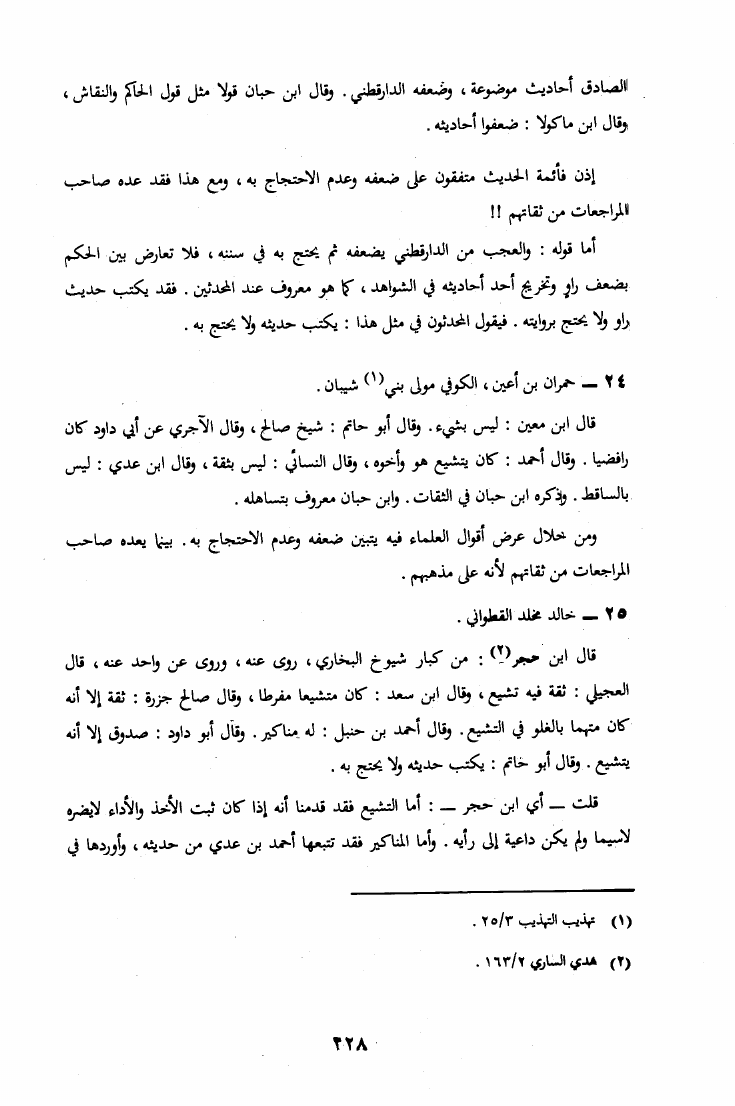 الصادق أحاديث موضوعة ، وضعفه الدارقطني . وقال ابن حبان قولا مثل قول الحاكم والنقاش ،
وقال ابن ماكولا : ضعفوا أحاديثه .
إذن فأئمة الحديث متفقون على ضعفه وعدم الاحتجاج به ، ومع هذا فقد عده صاحب
المراجعات من ثقاتهم !!
أما قوله : والعجب من الدارقطني يضعفه ثم يحتج به في سننه ، فلا تعارض بين الحكم
بضعف راوٍ وتخريج أحد أحاديثه في الشواهد ، كما هو معروف عند المحدثين . فقد يكتب حديث
راو ولا يحتج بروايته . فيقول المحدثون في مثل هذا : يكتب حديثه ولا يحتج به .
٢٤ ــ حمران بن أعين ، الكوفي مولى بني(١) شيبان .
قال ابن معين : ليس بشيء . وقال أبو حاتم : شيخ صالح ، وقال الآجري عن أبي داود كان
رافضيا . وقال أحمد : كان يتشيع هو وأخوه ، وقال النسائي : ليس بثقة ، وقال ابن عدي : ليس
بالساقط . وذكره ابن حبان في الثقات . وابن حبان معروف بتساهله .
ومن خلال عرض أقوال العلماء فيه يتبين ضعفه وعدم الاحتجاج به . بينما يعده صاحب
المراجعات من ثقاتهم لأنه على مذهبهم .
٢٥ ــ خالد مخلد القطواني .
قال ابن حجر(٢) : من كبار شيوخ البخاري ، روى عنه ، وروى عن واحد عنه ، قال
العجيلي : ثقة فيه تشيع ، وقال ابن سعد : كان متشيعا مفرطا ، وقال صالح جزرة : ثقة إلا أنه
كان متهما بالغلو في التشيع . وقال أحمد بن حنبل : له مناكير . وقال أبو داود : صدوق إلا أنه
يتشيع . وقال أبو خاتم : يكتب حديثه ولا يحتج به .
قلت ــ أي ابن حجر ــ : أما التشيع فقد قدمنا أنه إذا كان ثبت الأخذ والأداء لايضره
لاسيما ولم يكن داعية إلى رأيه . وأما المناكير فقد تتبعها أحمد بن عدي من حديثه ، وأوردها في
(١) تهذيب التهذيب ٢٥/٣ .
(٢) هدي الساري ١٦٣/٢ .
٢٢٨